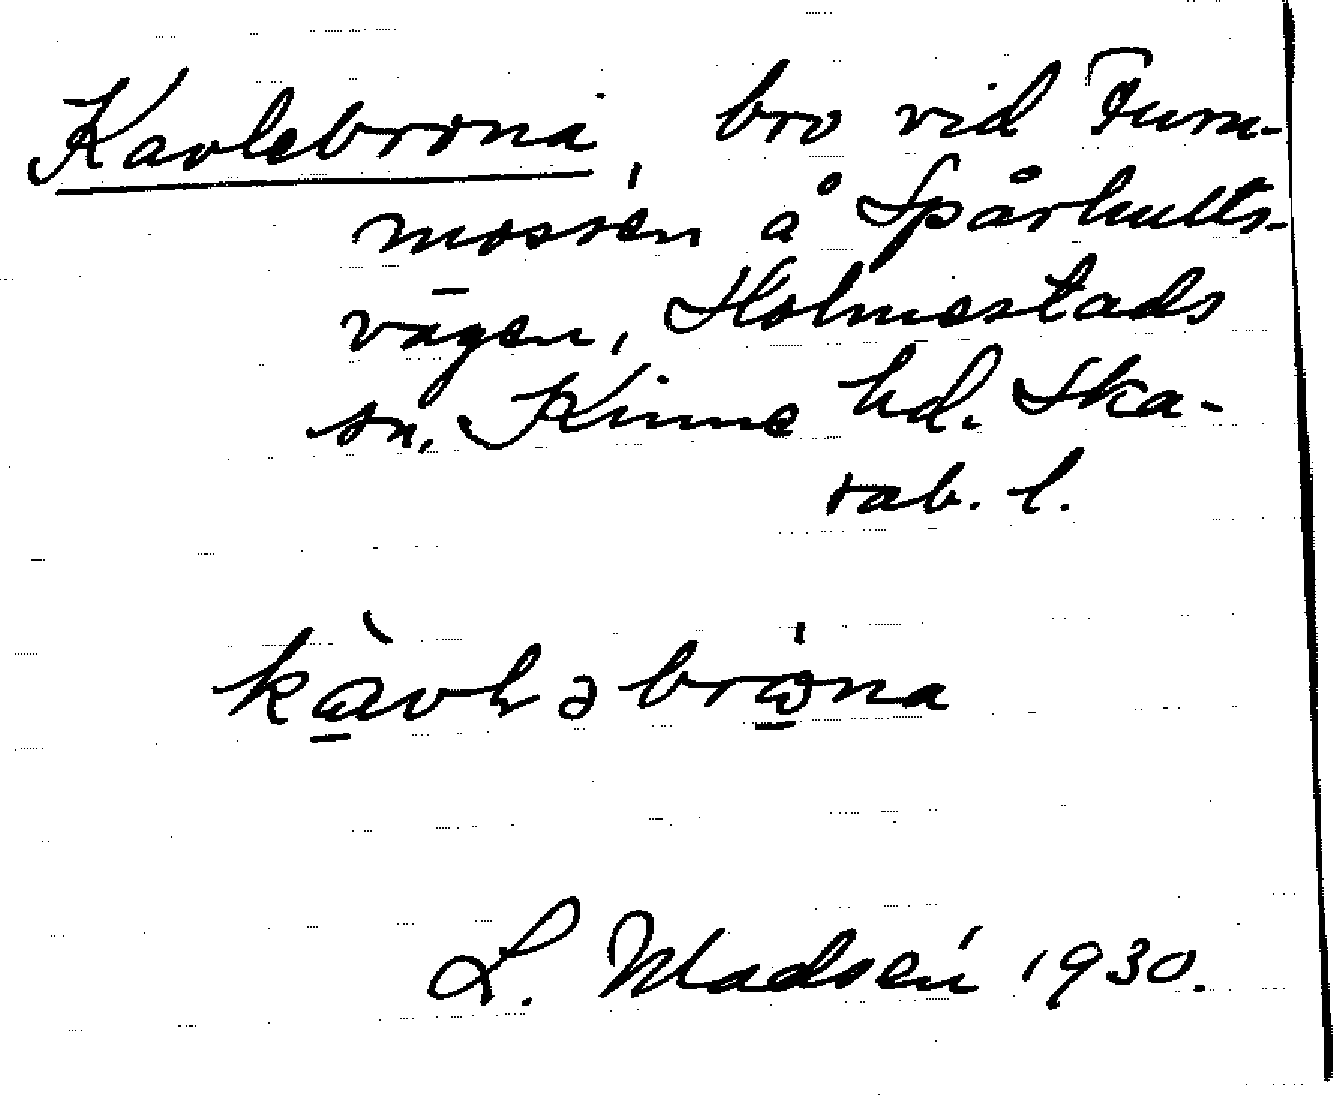 Kavlebrona, bro vid Furu-
mossen å Spårhults-
vägen, Holmestads
sn. Kinne hd. Ska-
rab. l.
kàvləbrona
L. Madsén 1930.